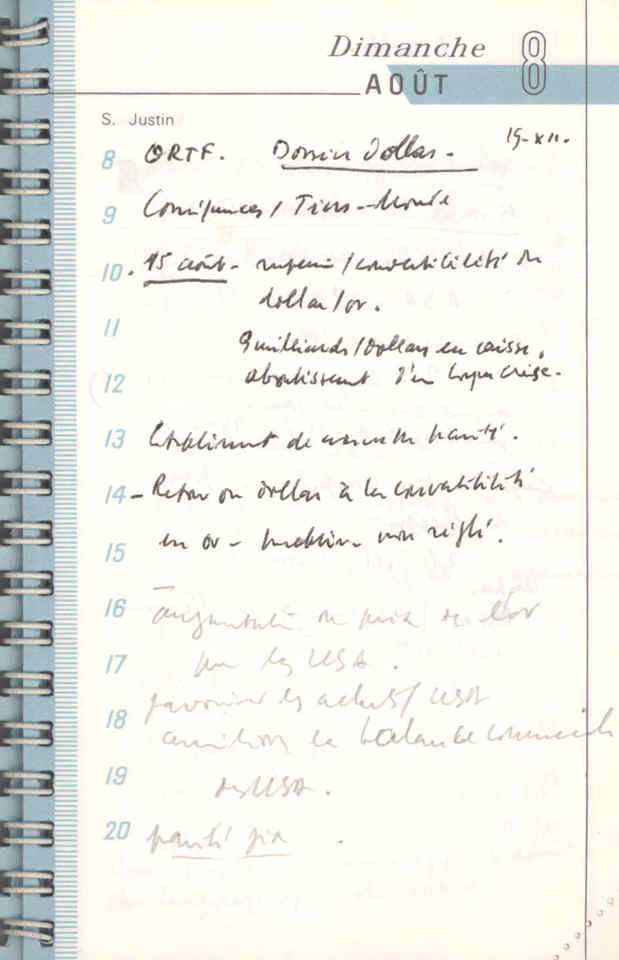 Dimanche 8
AOÛT
S. Justin
19-XII.
8 ORTF. Dossier Dollar.
9 Conséquences / Tiers-Monde
10. 15 août - / convertibilité du
dollar / or.
11
milliards / Dollars en caisse,
12 aboutissement d'un crise.
13 Etablissement de nouvelle parité.
14 - Retour du dollar à la convertibilité
en or - problème non réglé.
15
16 augmentation du prix de l'or
17 par les USA.
favoriser les achats / USA
18
améliorer la balance commerciale
19 des USA.
20 parité fix